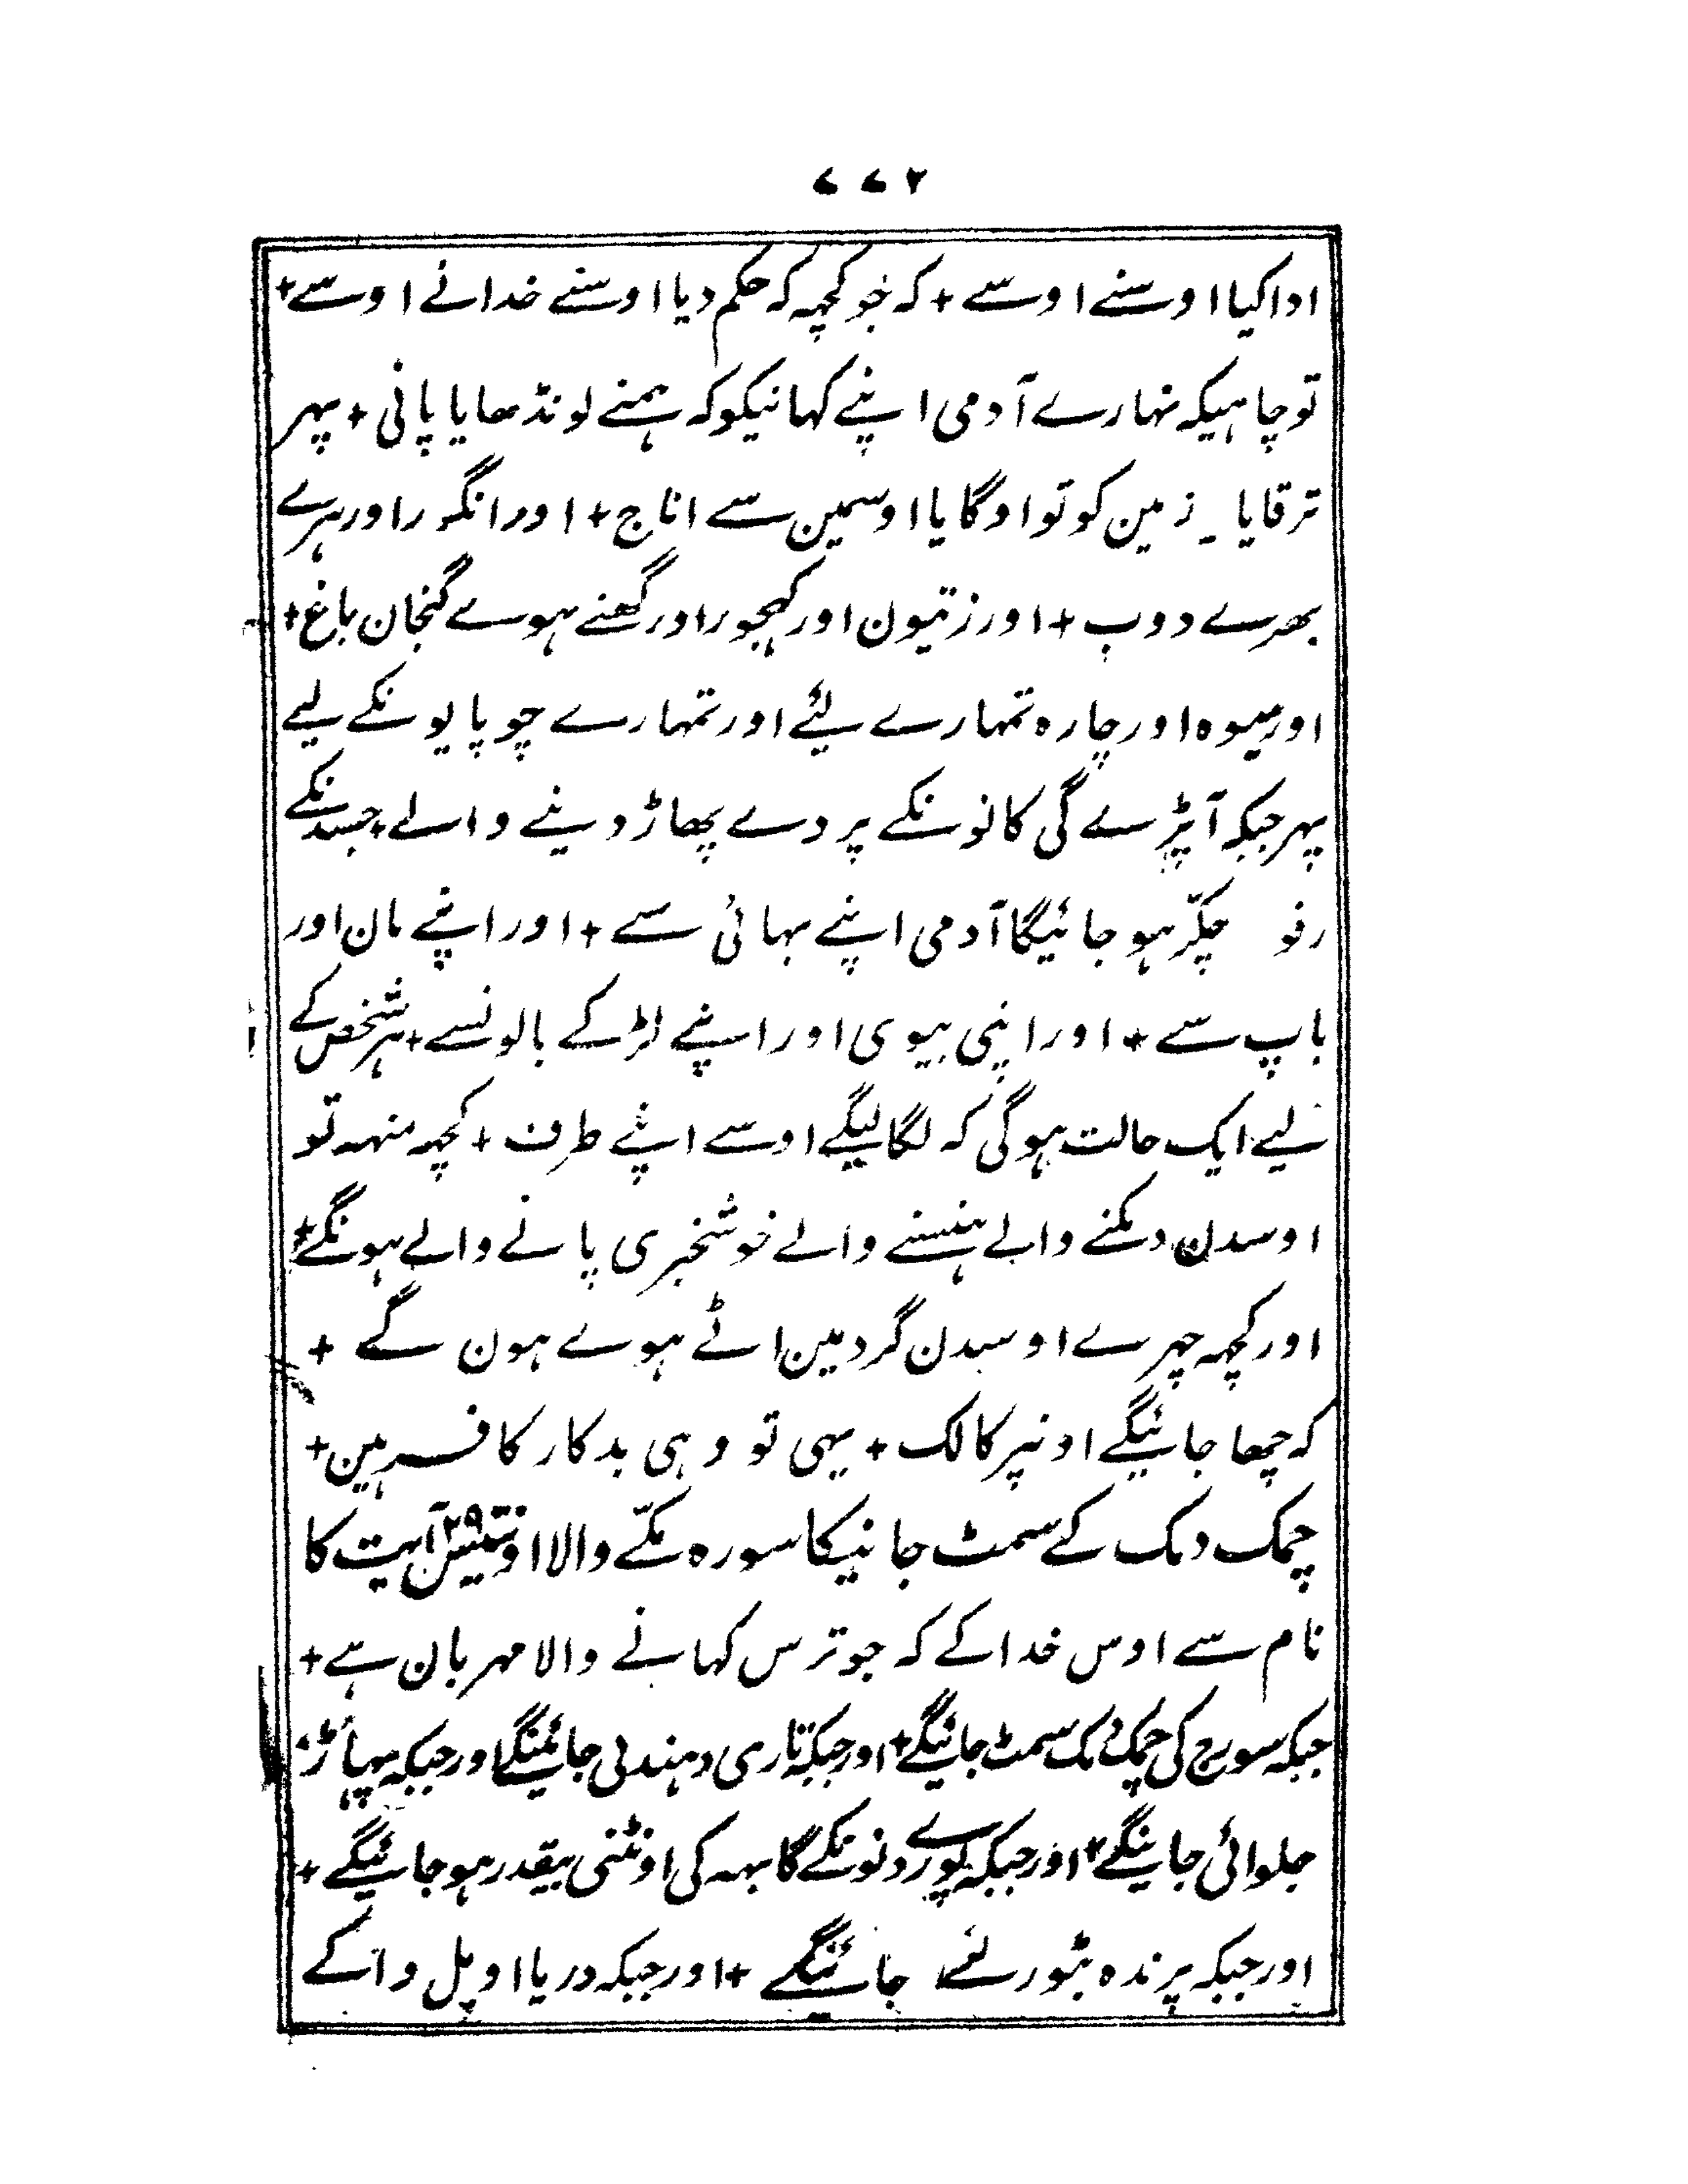 ۷۷۲
ادا کیا اوسنے اوسے + کہ جو کچہہ کہ حکم دیا اوسنے خدانے اوسے +
تو چاہیکہ نہارے آدمی اپنے کہانیکو کہ ہمنے لونڈھایا پانی + پہر
ترقایا زمین کو تو اوگایا اوسمین سے اناج + اور انگور اور ہرے
بھرے دوب + اور زتیون اور کھجور اور گھنے ہوے گنجان باغ +
اور میوہ اور چارہ تمہارے لیئے اور تمہارے چوپایونکے لیے
پہر جبکہ آپڑے گی کانونکے پردے پھاڑ دینے والے + جسدنکے
چکّر ہو جائیگا آدمی اپنے بہائی سے + اور اپنے مان اور
باپ سے + اور اپنی بیوی اور اپنے لڑکے بالونسے + ہر شخص کے
لیے ایک حالت ہوگی کہ لگا لیگے اوسے اپنے طرف + کچہہ منہہ تو
اوسدن دمکنے والے ہنسنے والے خوشخبری پانے والے ہونگے +
اور کچہہ چہرے اوسدن گرد مین اٹے ہوے ہون گے +
کہ چھا جائیگے اونپر کالک + یہی تو وہی بدکار کافر ہین +
چمک دمک کے سمٹ جانیکا سورہ مکّے والا اونتیس ۲۹ آیت کا
نام سے اوس خدا کے کہ جو ترس کہانے والا مہربان ہے +
جبکہ سورج کی چمک دمک سمٹ جائیگے + اور جبکہ تاری دہندلی جائینگے اور جبکہ پہاڑ
چلوائی جاینگے + اور جبکہ پورے دنونکے گابہہ کی اونٹنی بیقدر ہو جائیگے +
اور جبکہ پرندہ بٹورلئے جائینگے + اور جبکہ دریا اوبل واکے